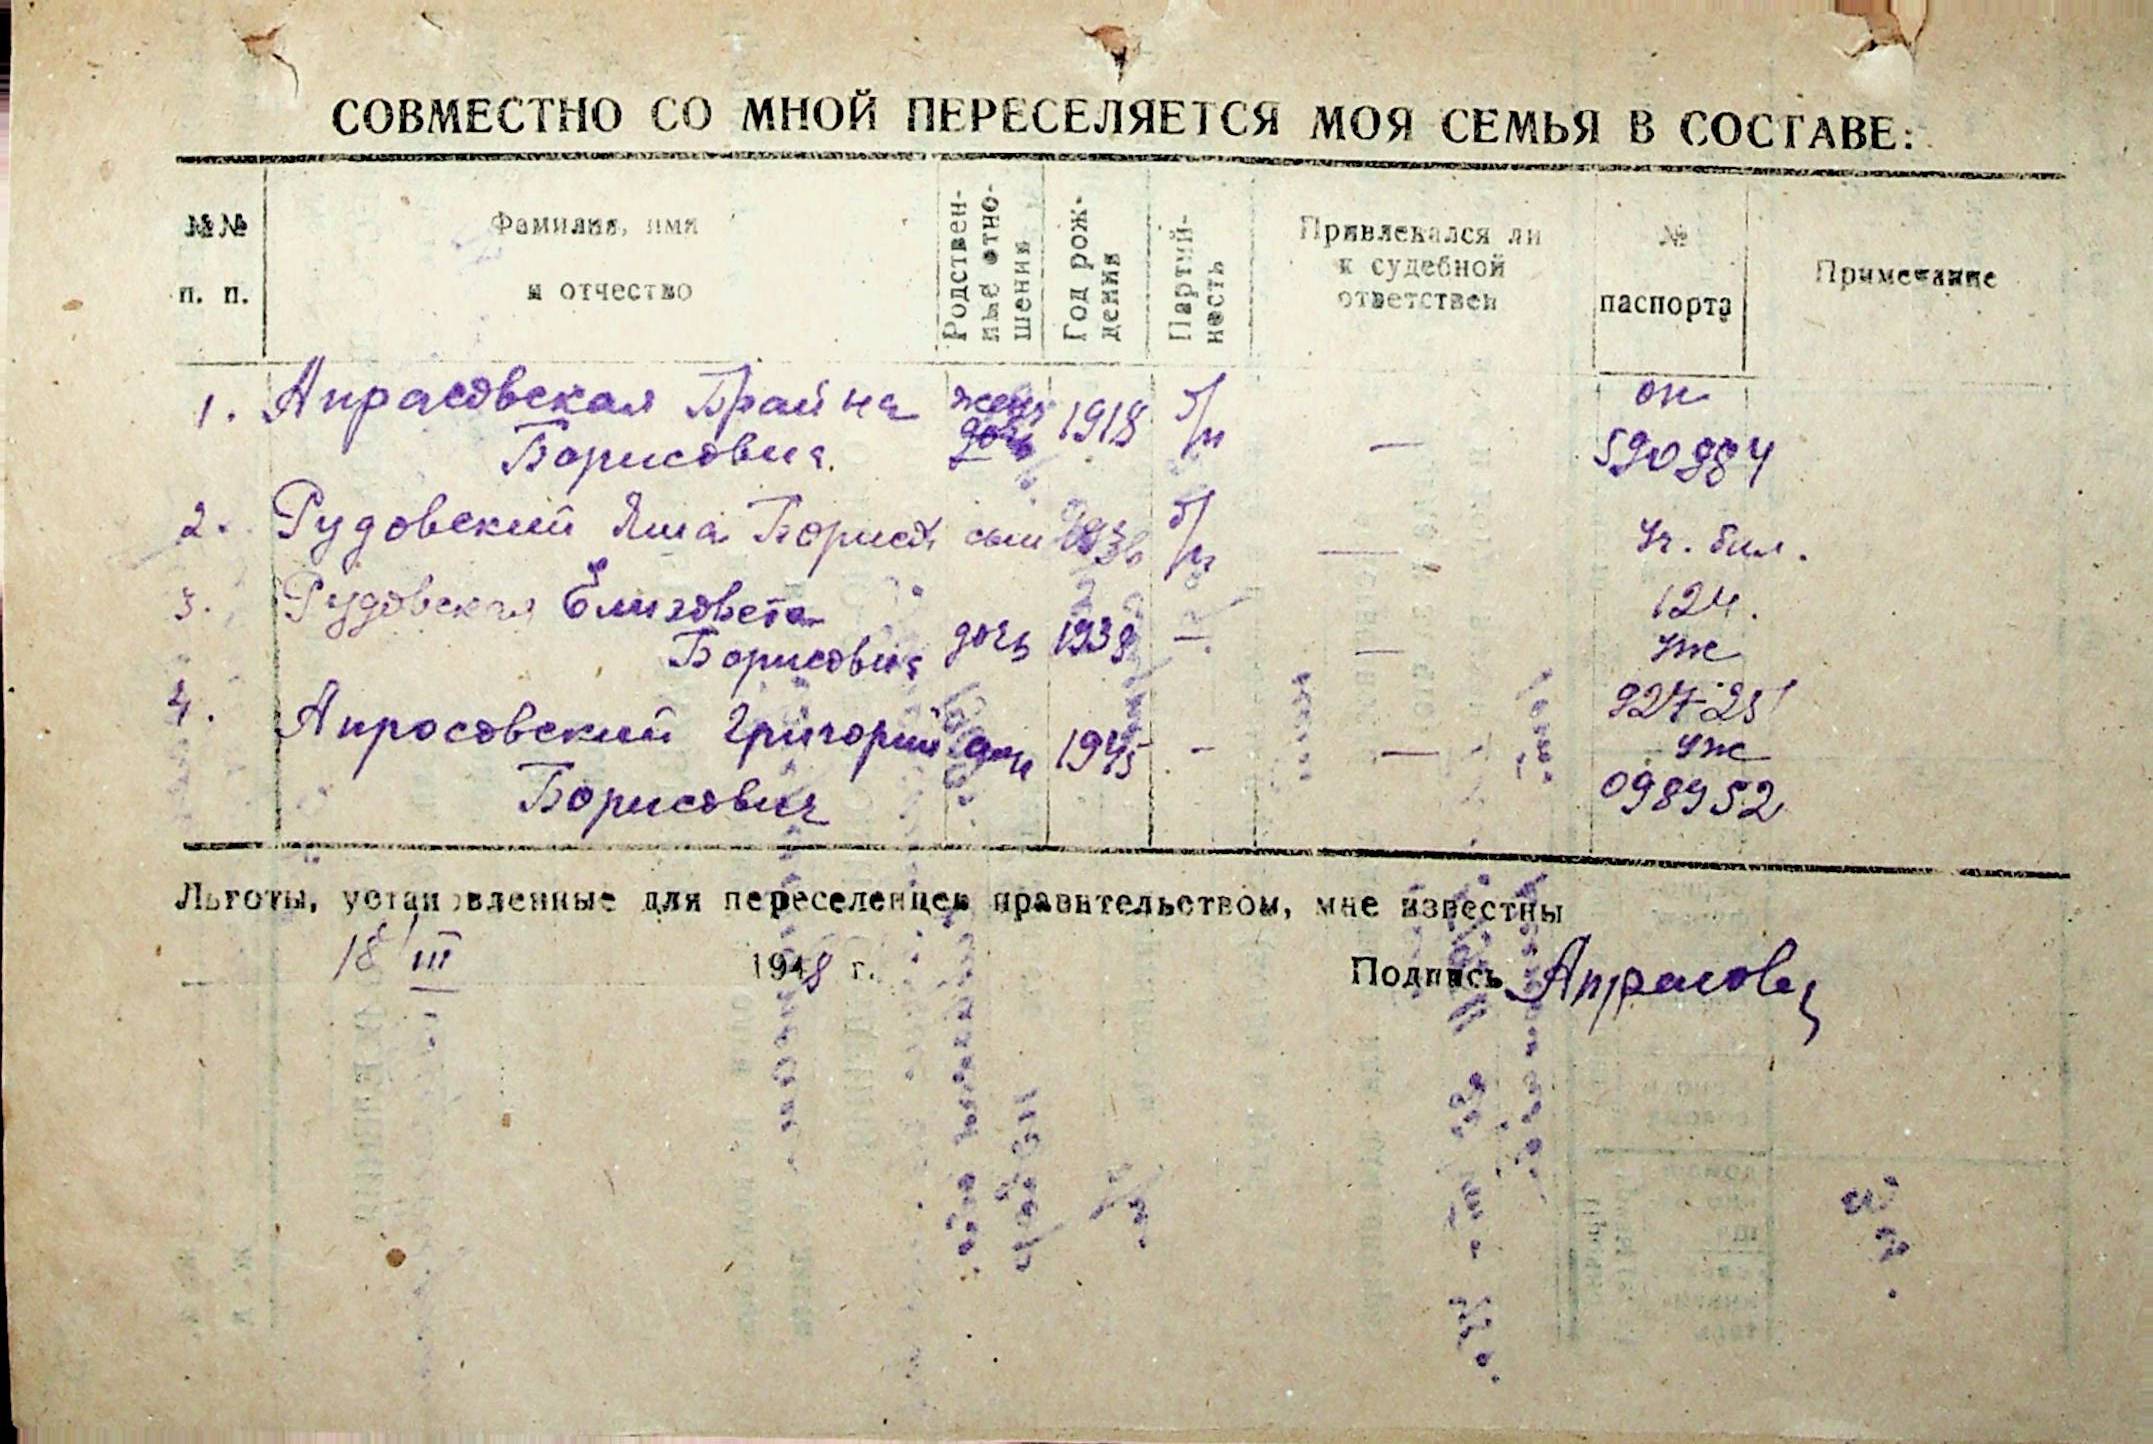 СОВМЕСТНО СО МНОЙ ПЕРЕСЕЛЯЕТСЯ МОЯ СЕМЬЯ В СОСТАВЕ:
№№ п. п.
Фамилия, имя и отчество
Родственные отношения
Год рождения
Партийность
Привлекался ли к судебной ответствен
№ паспорта
Примечание
1. Апрасовская Брайна жена 1918 б/п — ОК
Борисовна. 590984
2. Рудовский Яша Борис. сын 1936 б/п — Уч. бил.
124.
3. Рудовская Елизовета
Борисовна дочь 1938 — — УЖ
927-251
4. Апросовский Григорий 1945 - — УЖ
Борисович 098952
Льготы, установленные для переселенцев правительством, мне известны
18/III 1948 г. Подпись Апрасовс